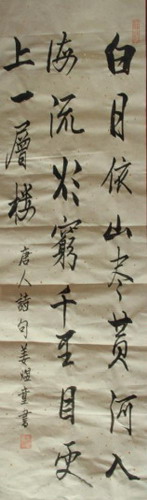 白日依山尽黄河入
海流欲窮千里目更
上一層楼
唐人詩句姜童書